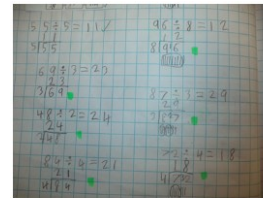 55÷5=11
11
5|55
69÷3=23
23
3|69
48÷2=24
24
2|48
84÷4=21
21
4|84
96÷8=12
12
8|96
87÷3=29
29
3|87
72÷4=18
18
4|72